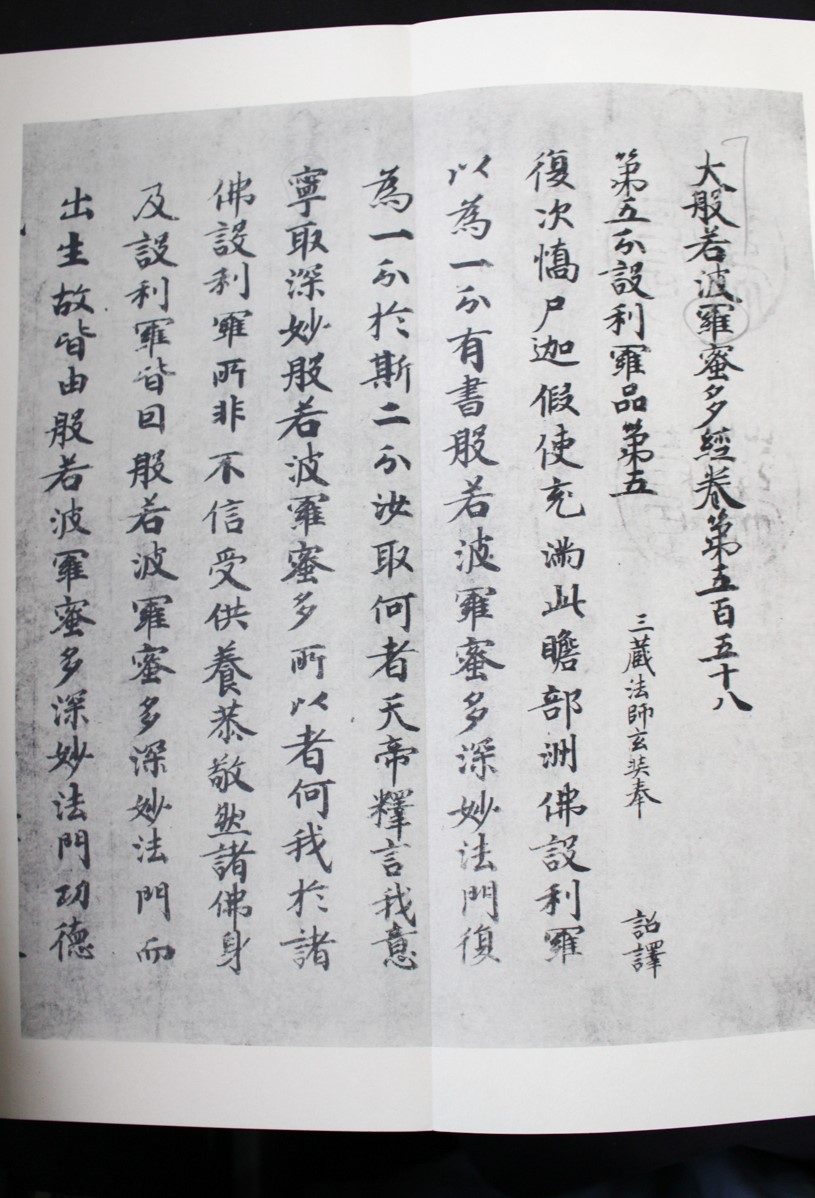 大般若波羅蜜多經卷第五百五十八
第五分設利羅品第五 三蔵法師玄奘奉 詔譯
復次憍尸迦假使充滿此贍部洲佛設利羅
以為一分有書般若波羅蜜多深妙法門復
為一分於斯二分汝取何者天帝釋言我意
寧取深妙般若波羅蜜多所以者何我於諸
佛設利羅所非不信受供養恭敬然諸佛身
及設利羅皆因般若波羅蜜多深妙法門而
出生故皆由般若波羅蜜多深妙法門功德